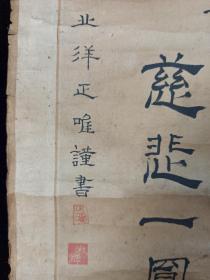 慈悲一圆
北洋正唯謹書